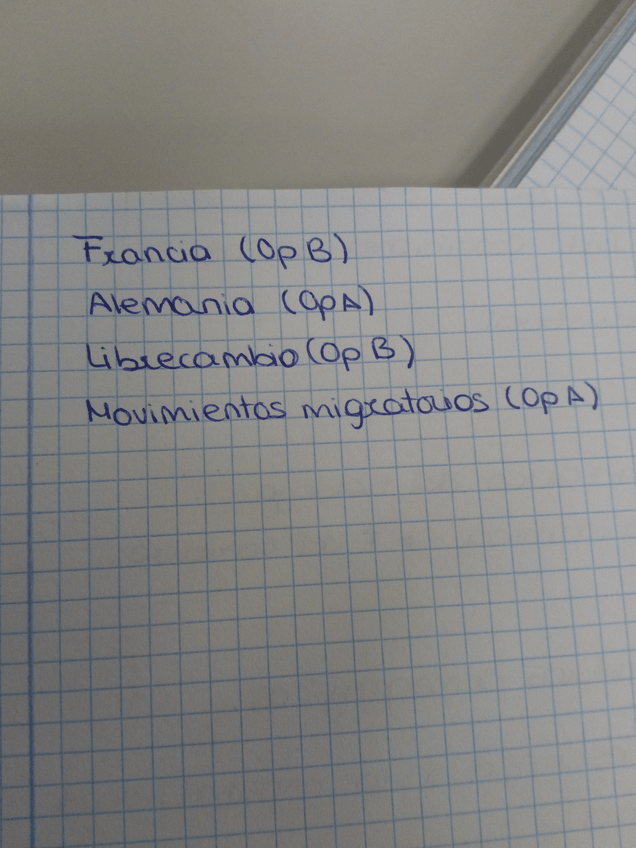 Francia (Op B)
Alemania (Op A)
Librecambio (Op B)
Movimientos migratorios (Op A)